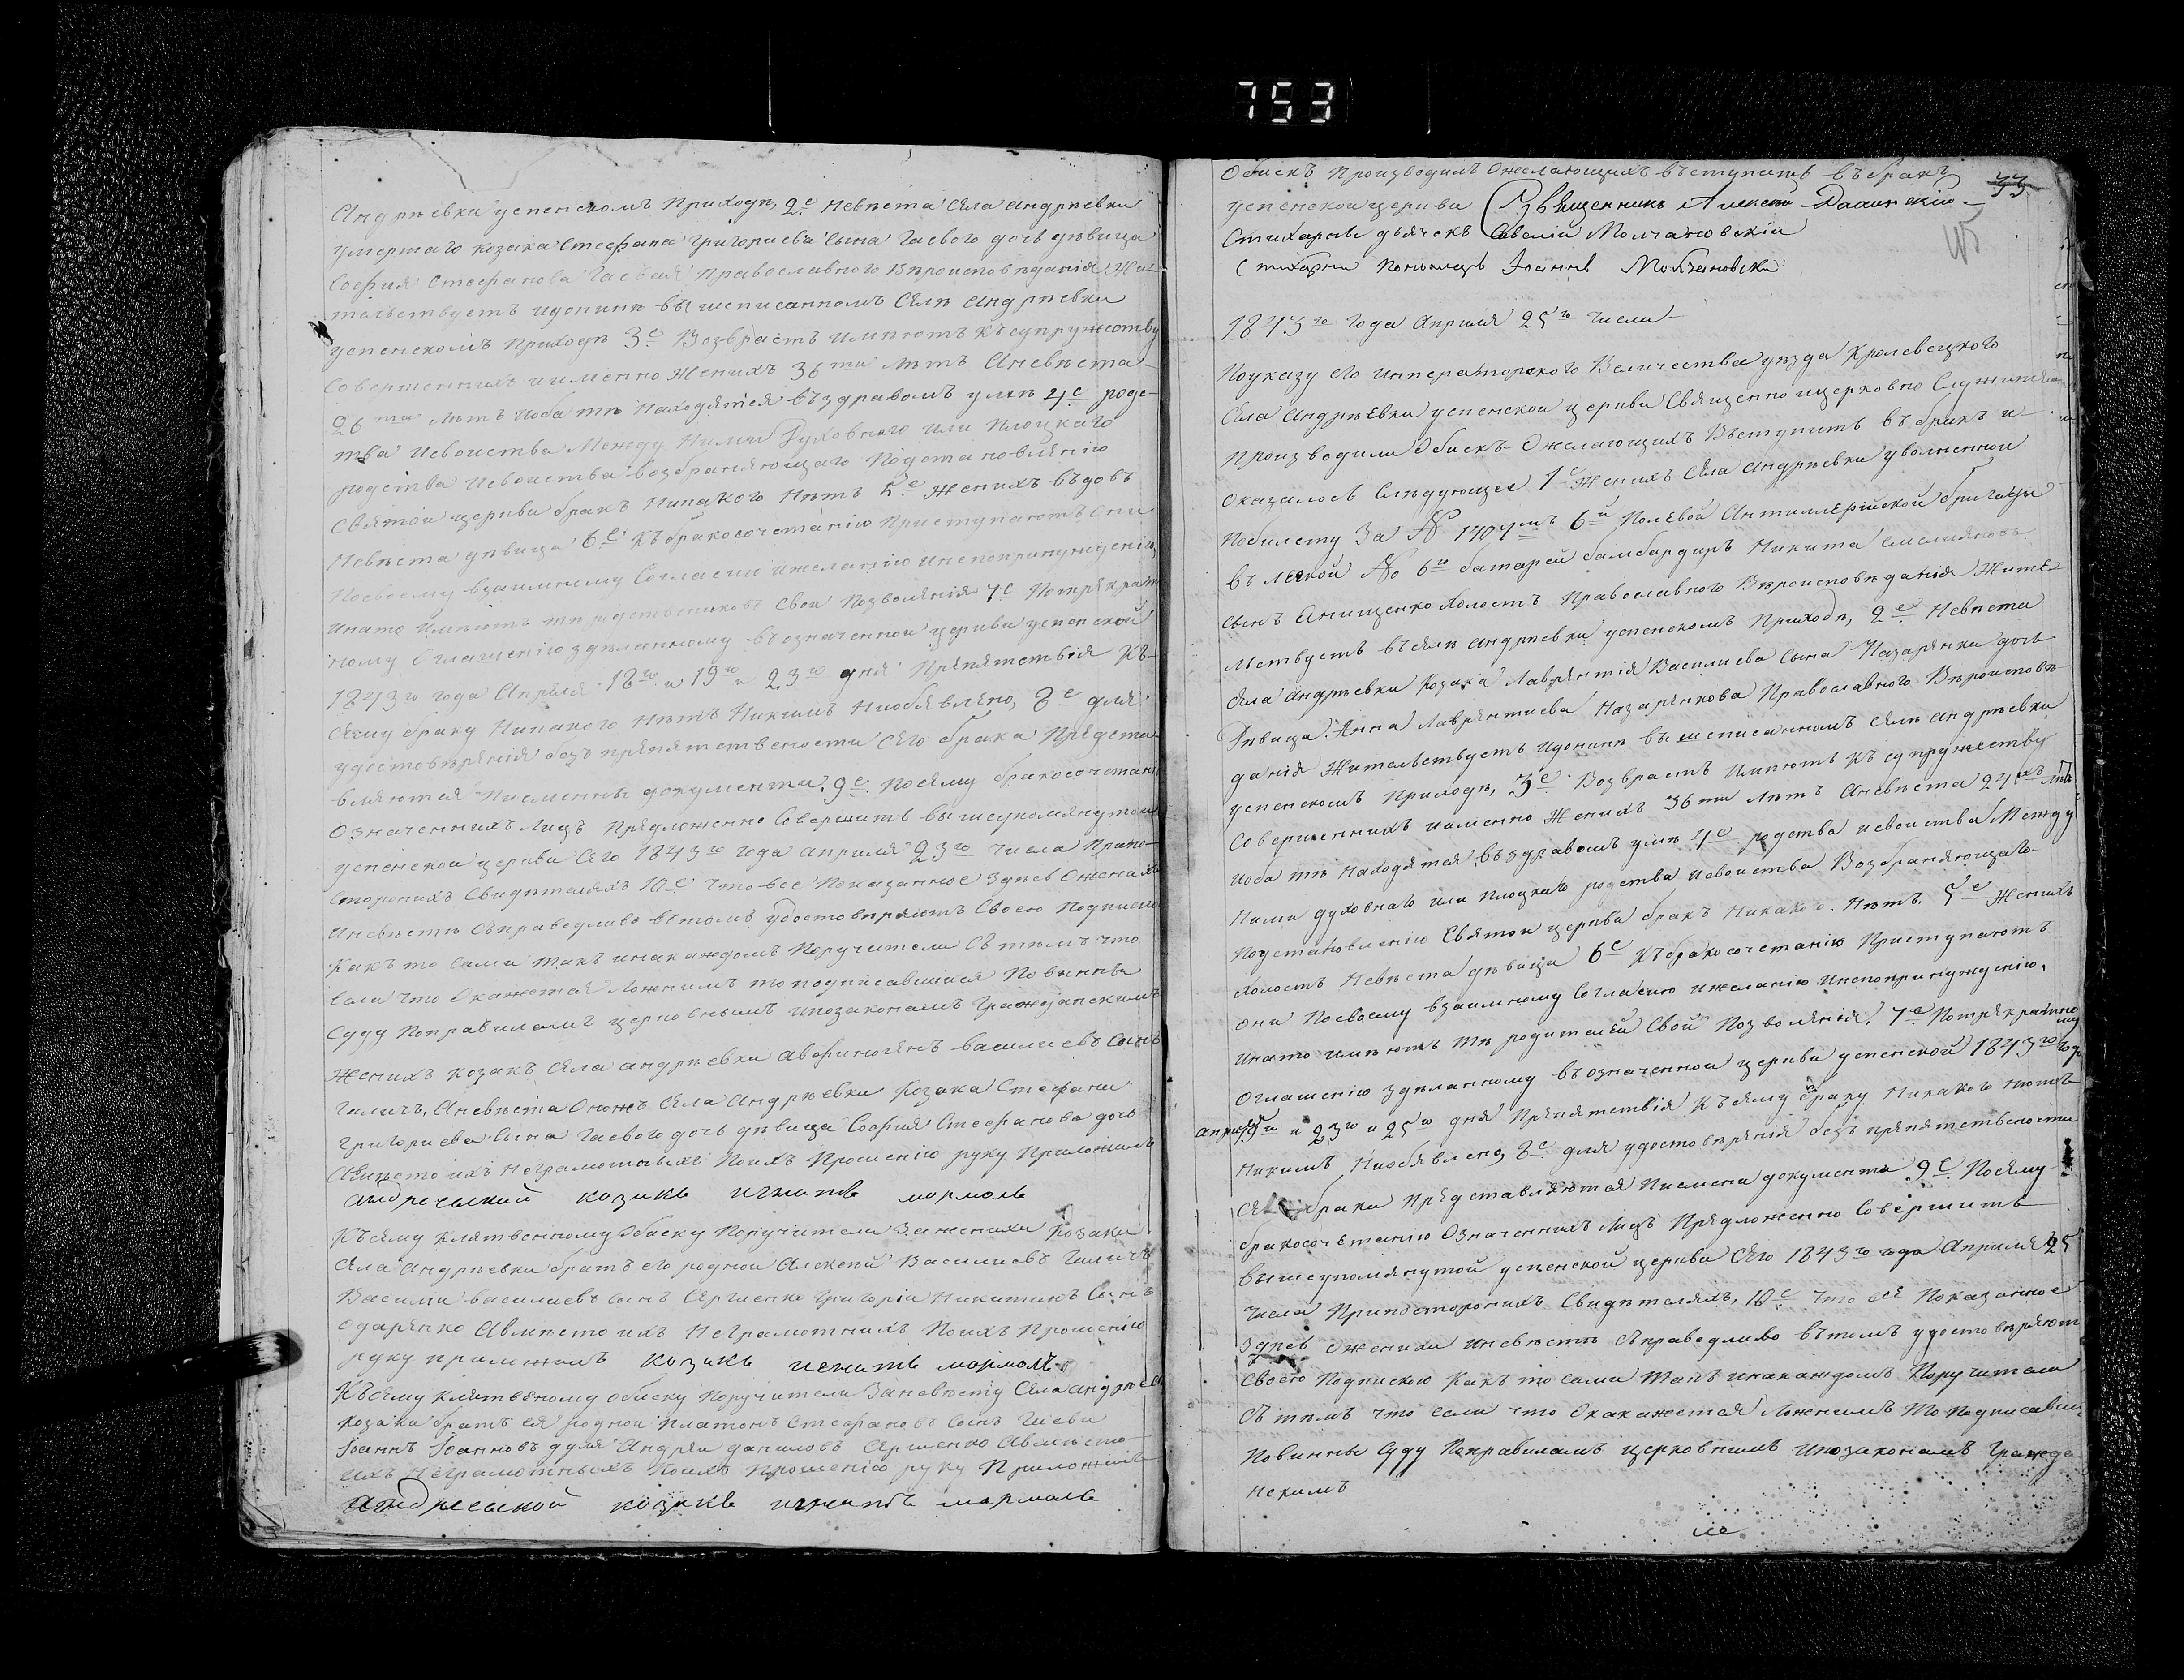 753
Андрѣевки успенскомъ Приходѣ, 2е Невѣста Села Андрѣевки
умершаго козака Стефана Григориева Сына Гаевого дочь дѣвица
София Стефанова Гаевая Православного Вѣроисповѣданія Жи-
тельствуетъ идонинѣ вышеписанномъ Селѣ Андрѣевки
успенскомъ Приходѣ 3е Возврастъ Имѣютъ Къ супружеству
Совершенныхъ иименно Женихъ 36ти Лѣтъ Аневѣста
26ти Лѣтъ иоба тѣ Находятся въздравомъ умѣ 4е родс-
тва Исвоиства Между Ними Духовного или Плоцкаго
родства исвоиства возбраняющаго Подстановленію
Святои церкви бракъ Никакого Нѣтъ 5е Женихъ вдовъ
Невѣста дѣвица 6е Къбракосочетанію Приступаютъ Они
Посвоему взаимному Согласию ижеланію инепопринужденію
инато Имѣютъ тѣ родственниковъ Свои Позволения 7е Потрекрат
ному Оглашенію зделанному въозначеннои церкви успенской
1843го года Апреля 18го и 19го и 23го дня Препятствія Къ
Сему браку Никакого Нѣтъ Никимъ Необявлено, 8е для
удостовѣренія безъ препятственности Сего брака Предста
вляются Писменны документи. 9е Посему бракосочетани
Означеннихъ Лицъ Предложенно Совершить вышеупомянутои
успенскои церкви Сего 1843го года Апреля 23го Числа Припо-
стороннихъ Свидѣтеляхъ 10е Что все Показанное Здѣсь Оженихѣ
Иневѣстѣ Справедливо вътомъ удостовѣряютъ Своею Подпискою
Какъ то Сами такъ инакаждомъ Поручители Съ тѣмъ что
Если Что Окажется Ложнимъ то подписавшиися Повинны
Суду Поправиламъ церковнымъ ипозаконамъ Гражданскимъ
Женихъ козакъ Села Андрѣевки Василиевъ Сынъ
Гиличъ, Аневѣста Оножъ Села Андрѣевки Козака Стефана
Григориева Сына Гаевого дочь дѣвица София Стефанова дочь
Авместо ихъ Неграмотныхъ Поихъ Прошенію руку Приложилъ
андреевский козакъ игнатъ мормоль
Къ Сему клятвенному Обиску Поручители Зажениха Козаки
Села Андрѣевки братъ его роднои Алексѣй Василиевъ Гиличъ
Василіи Василиевъ Сынъ Сергиенко Григоріи Никитинъ Сынъ
Одаренко Авмѣсто ихъ Неграмотнихъ Поихъ Прошенію
руку приложилъ козакъ игнатъ мормоль
Къ Сему Клятвеному обиску Поручители Заневѣсту Села Андрѣевки
козаки братъ ея роднои Платонъ Стефановъ Сынъ Гаеви
Іоаннъ Іоанновъ Андреи даниловъ Авмѣсто
ихъ Неграмотныхъ Поихъ Прошенію руку Приложилъ
андреевской козакъ игнатъ мормоль
Обискъ Производилъ Ожелающихъ въступить въбракъ 33
успенскои церкви Священникъ Алексѣи
Стихарны дьячекъ Савелій Молчановскіи
Стихарни Пономарь Іоаннъ Молчановски
1843го года Апреля 25го Числа
Поуказу его Императорского Величества уѣзда Кролевецкого
Села Андрѣевки успенскои церкви Священно ицерковно Служители
Производили Обискъ Ожелающихъ Вступить въ бракъ и
Оказалось Слѣдующее 1е Женихъ Села Андрѣевки уволненнои
Побилету За № 6й Полевой Антиллерийской бригады
въ легкой № 6го батареи бамбардиръ Никита Емелияновъ
сынъ Онищенко Холостъ Православного Вѣроисповѣданія Жите-
льствуетъ въселѣ Андрѣевки успенскомъ Приходѣ, 2е Невѣста
Села Андрѣевки Козака Лаврентія Василиева Сына Назаренка дочь
Дѣвица Анна Лаврентиева Назаренкова Православного Вѣроисповѣ-
данія Жительствуетъ идонинѣ вышеписанномъ Селѣ Андрѣевки
успенскомъ Приходѣ, 3е Возврастъ Имѣютъ Къ супружеству
Совершеннихъ иименно Женихъ 36ти Лѣтъ Аневѣста 24хъ Лѣтъ
иоба тѣ Находятся въздравомъ умѣ 4е родства исвоиства Между
Ними духовнаго или плоцкаго родства исвоиства Возбраняющаго
Подстановленію Святои церкви бракъ Никакого Нѣтъ. 5е Женихъ
Холостъ Невѣста дѣвица 6е Къбракосочетанію Приступаютъ
они Посвоему взаимному Согласию ижеланію инепопринужденію.
инато имѣютъ тѣ родителей Свой Позволенія. 7е Потрекратно
му
Оглашенію зделанному въозначеннои церкви успенской 1843го года
Апреля 19го и 23го и 25го дня Препятствія Късему браку Никакого Нѣтъ
Никимъ Необявлено, 8е для удостовѣренія безъ препятственности
Сего брака Представляются Писмени документа 9е Посему
бракосочетанію Означеннихъ Лицъ Предложенно Совершить
вышеупомянутой успенской церкви Сего 1843го года Апреля 25
Числа Припосторонихъ Свидѣтеляхъ, 10е Что все Показанное
Здѣсь Оженихи иневѣсти Справедливо вътомъ удостовѣряютъ
Своею Подпискою Какъ то Сами Такъ инакаждомъ Поручители
Съ тѣмъ что если что Окакажется Ложнимъ То Подписавши
Повинны Суду Поправиламъ церковнимъ ипозаконамъ Гражда
нскимъ